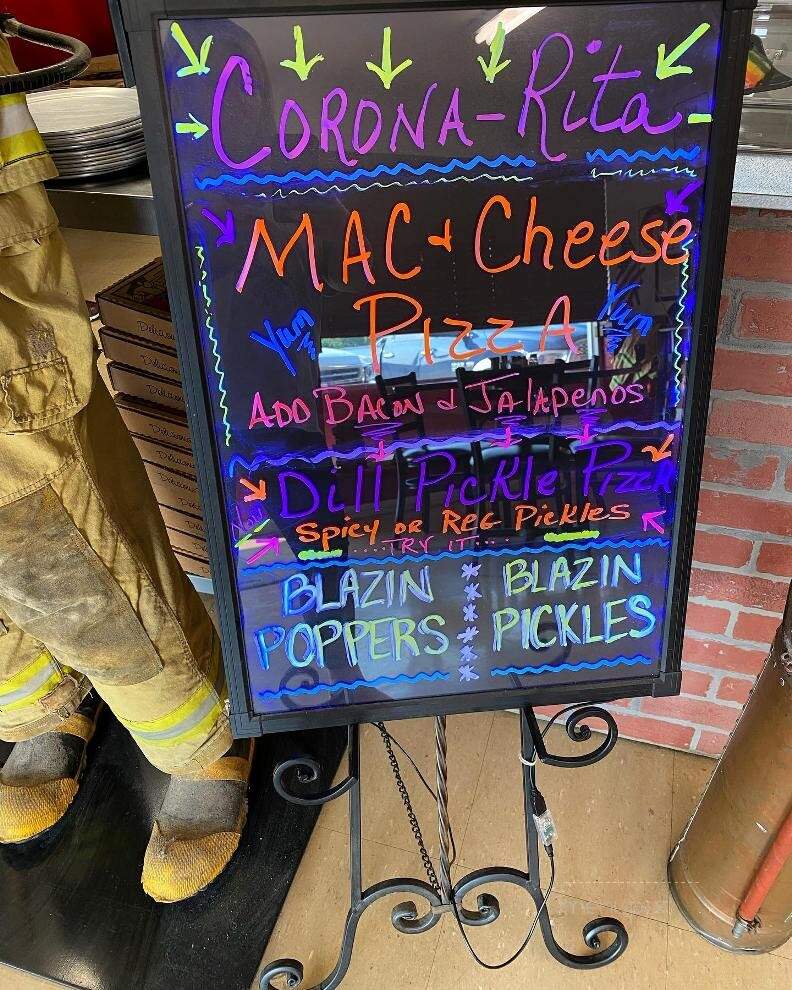 CORONA-Rita
MAC & Cheese
Yum PIZZA Yum
ADD BACON & JAlApenos
Dill PICKle PIZZA
Spicy OR REG PICKlES
....TRY IT....
BLAZIN POPPERS
BLAZIN PICKLES
Delicious
Delicious